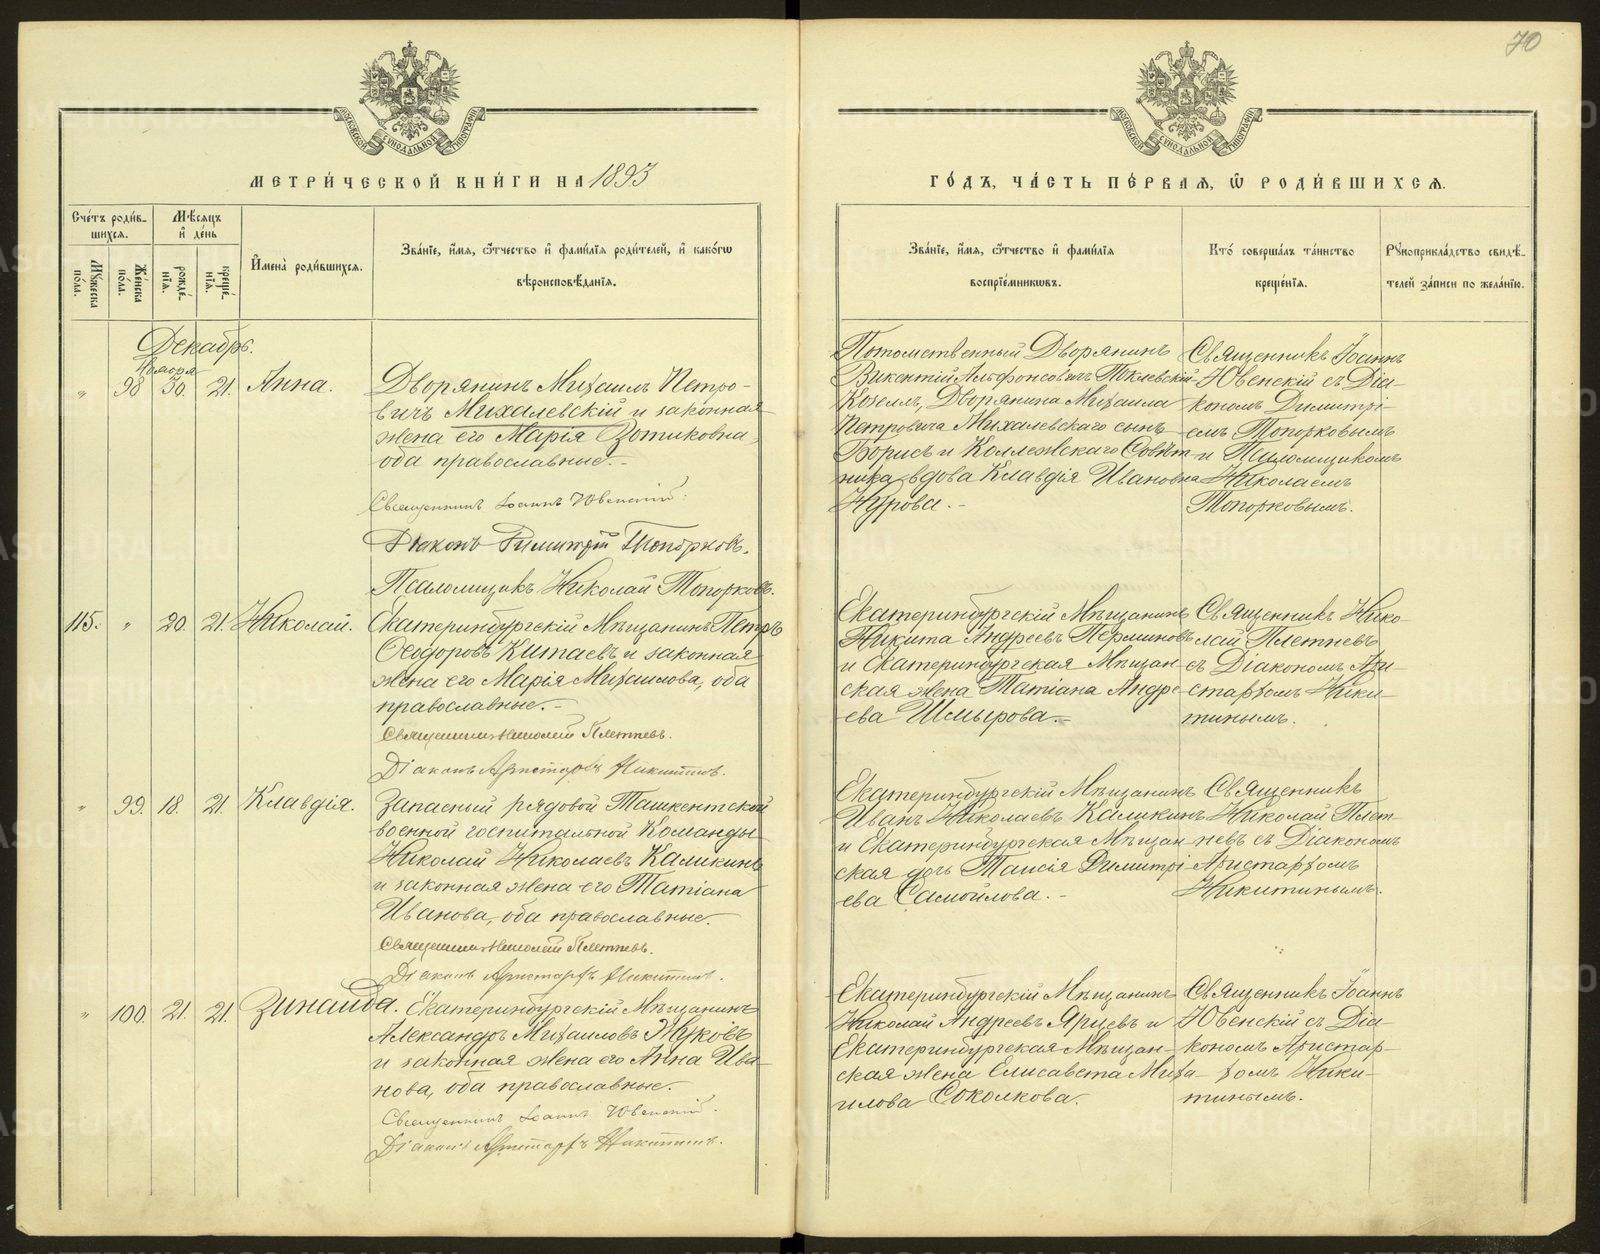 70
МОСКОВСКОЙ СѴНОДАЛЬНОЙ ТИПОГРАФІИ
МОСКОВСКОЙ СѴНОДАЛЬНОЙ ТИПОГРАФІИ
МЕТРИ́ЧЕСКОЙ КНИ́ГИ НА 1893
ГО́ДЪ, ЧА́СТЬ ПЕ́РВАЯ, Ѡ РОДИ́ВШИХСЯ.
Сче́тъ роди́в-
шихся.
Мѣсяцъ
и де́нь
Мꙋжеска
по́ла.
Же́нска
по́ла.
рожде́-
нїя.
креще́-
нїя.
Имена̀ роди́вшихся.
Зва́нїе, и́мя, ѻ́тчество и фами́лїя роди́телей, и како́гѡ
вѣроисповѣ́данїя.
Зва́нїе, и́мя, ѻ́тчество и фами́лїя
воспрїе́мникѡвъ.
Кто́ соверша́лъ та́инство
креще́нїя.
Рꙋкоприкла́дство свидѣ́-
телей за́писи по жела́нїю.
Декабрь.
Ноября
" 98 30. 21. Анна.
Дворянинъ Михаилъ Петро-
вичъ Михалевскій и законная
жена его Марія Зотиковна,
оба православные.-
Священникъ Іоаннъ Ювенскій.
Діаконъ Димитрій Топорковъ.
Псаломщикъ Николай Топорковъ.
Потомственный Дворянинъ
Викентій Альфонсовичъ Поклевскій-
Козеллъ, Дворянина Михаила
Петровича Михалевскаго сынъ
Борисъ и Коллежскаго Совѣт-
ника вдова Клавдія Ивановна
Нурова.-
Священникъ Іоаннъ
Ювенскій съ Діа-
кономъ Димитрі-
емъ Топорковымъ
и Псаломщикомъ
Николаемъ
Топорковымъ.
115. " 20. 21. Николай.
Екатеринбургскій Мѣщанинъ Петръ
Ѳеодоровъ Китаевъ и законная
жена его Марія Михаилова, оба
православные.-
Священникъ Николай Плетневъ.
Діаконъ Аристархъ Никитинъ.
Екатеринбургскій Мѣщанинъ
Никита Андреевъ Перминовъ
и Екатеринбургская Мѣщан-
ская жена Татіана Андре-
ева Шмырова.-
Священникъ Нико-
лай Плетневъ
съ Діакономъ Ари-
стархомъ Ники-
тинымъ.
" 99. 18. 21. Клавдія.
Запасный рядовой Ташкентской
военной госпитальной Команды
Николай Николаевъ Каликинъ
и законная жена его Татіана
Иванова, оба православные.
Священникъ Николай Плетневъ.
Діаконъ Аристархъ Никитинъ.
Екатеринбургскій Мѣщанинъ
Иванъ Николаевъ Каликинъ
и Екатеринбургская Мѣщан
ская дочь Таисія Димитрі
ева Самойлова.-
Священникъ
Николай Плет-
невъ съ Діакономъ
Аристархомъ
Никитинымъ.
" 100. 21. 21. Зинаида.
Екатеринбургскій Мѣщанинъ
Александръ Михаиловъ Жуковъ
и законная жена его Анна Ива-
нова, оба православные.-
Священникъ Іоаннъ Ювенскій.
Діаконъ Аристархъ Никитинъ.
Екатеринбургскій Мѣщанинъ
Николай Андреевъ Ярцевъ и
Екатеринбургская Мѣщан-
ская жена Елисавета Миха-
илова Соколкова.
Священникъ Іоаннъ
Ювенскій съ Діа-
кономъ Аристар-
хомъ Ники-
тинымъ.
METRIKI.GASO-URAL.RU